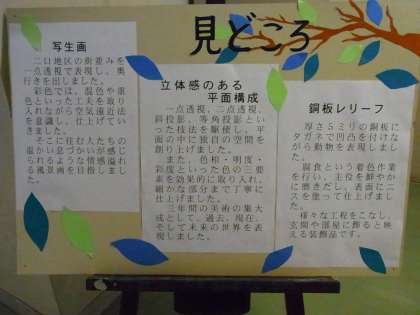 見どころ
写生画
二口地区の街並みを
一点透視で表現し、奥
行きを出しました。
彩色では、混色や重
色といった工夫を取り
入れながら空気遠近法
を意識し、仕上げてい
きました。
そこに住む人たちの
温かい息づかいが感じ
られるような情感溢れ
る風景画を目指しまし
た。
立体感のある
平面構成
一点透視、二点透視、
斜投影、等角投影とい
った技法を駆使し、平
面の中に独自の空間を
創り上げました。
また、色相・明度・
彩度といった色の三要
素を効果的に取り入れ、
細かな部分まで丁寧に
仕上げました。
三年間の美術の集大
成として、過去、現在、
そして未来の世界を表
現しました。
銅板レリーフ
厚さ5ミリの銅板に
タガネで凹凸を付けな
がら動物を表現しまし
た。
腐食という着色作業
を行い、主役を鮮やか
に磨きだし、表面にニ
スを塗って仕上げまし
た。
様々な工程をこなし、
玄関や部屋に飾ると映
える装飾品です。